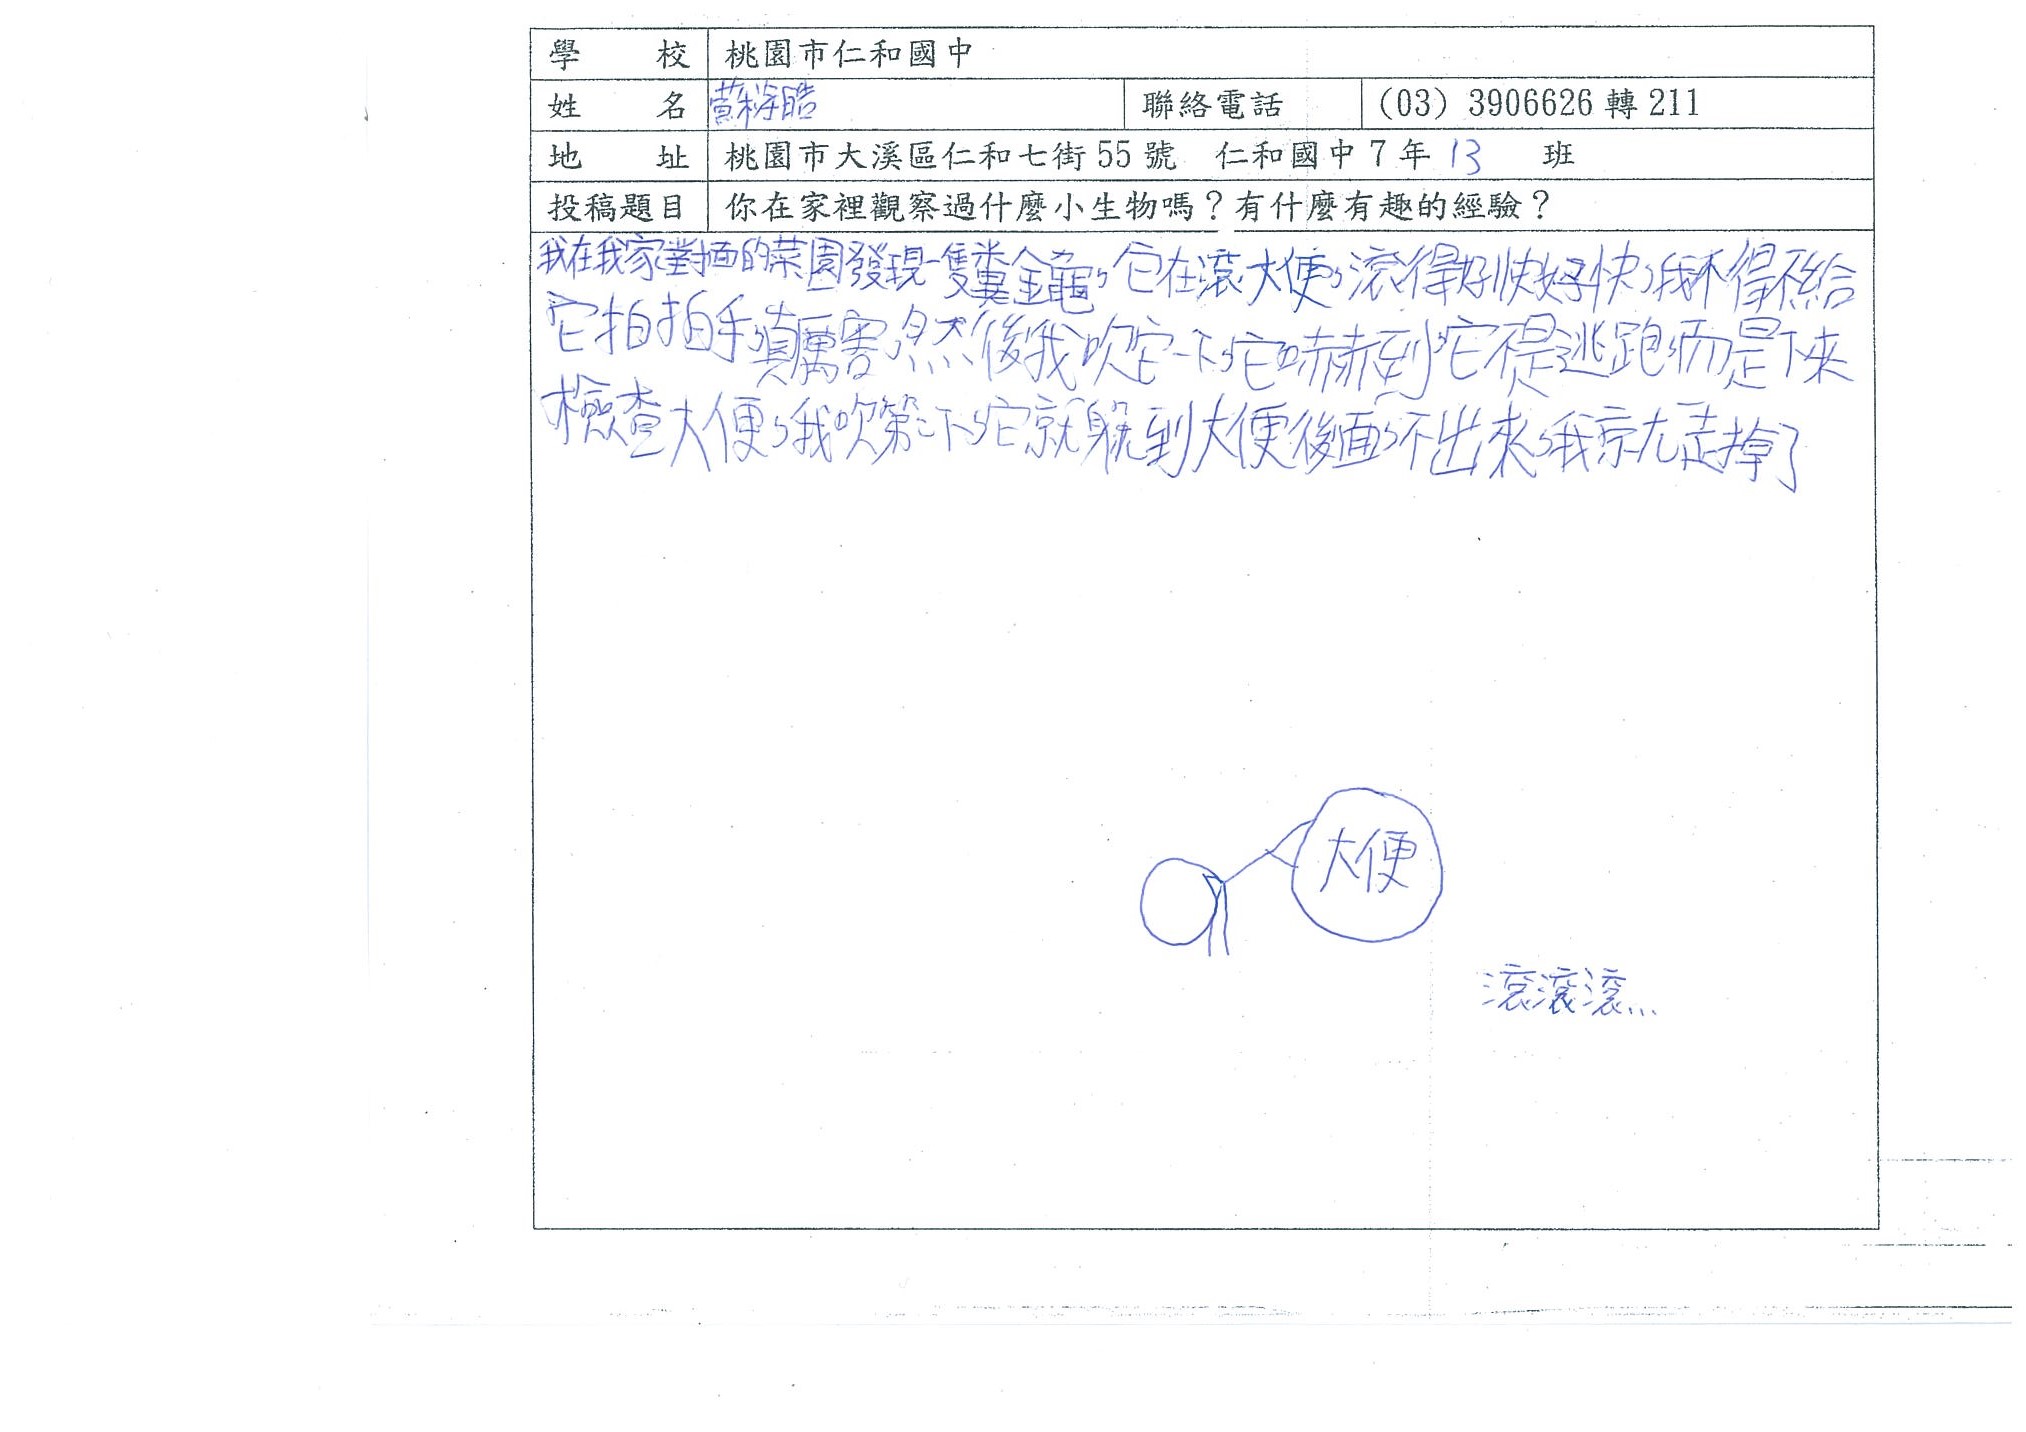 學校 桃園市仁和國中
姓名 聯絡電話 (03) 3906626 轉 211
地址 桃園市大溪區仁和七街 55 號 仁和國中 7 年 13 班
投稿題目 你在家裡觀察過什麼小生物嗎？有什麼有趣的經驗？
我在我家對面的菜園發現一隻糞金龜，它在滾大便，滾得好快好快，我不得不給
它拍拍手，真厲害，然後我吹它一下，它嚇到，它不是逃跑，而是下來
檢查大便，我吹第二下，它就躲到大便後面，不出來，我就走掉了
大便
滾滾滾...